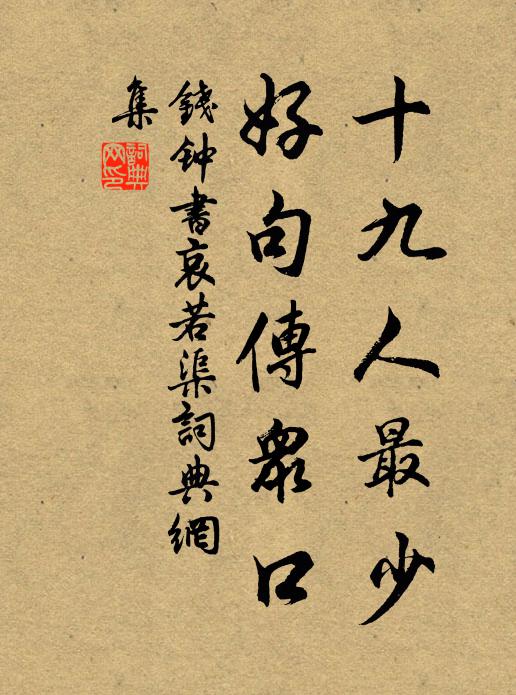 十九人最少
好句傳眾口
錢钟書哀若渠詞典網
集
詞典网印